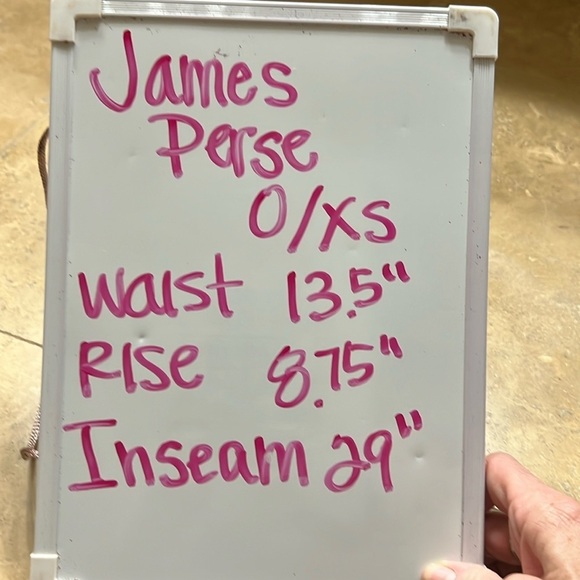 James
Perse
0/XS
Waist 13.5"
Rise 8.75"
Inseam 29"